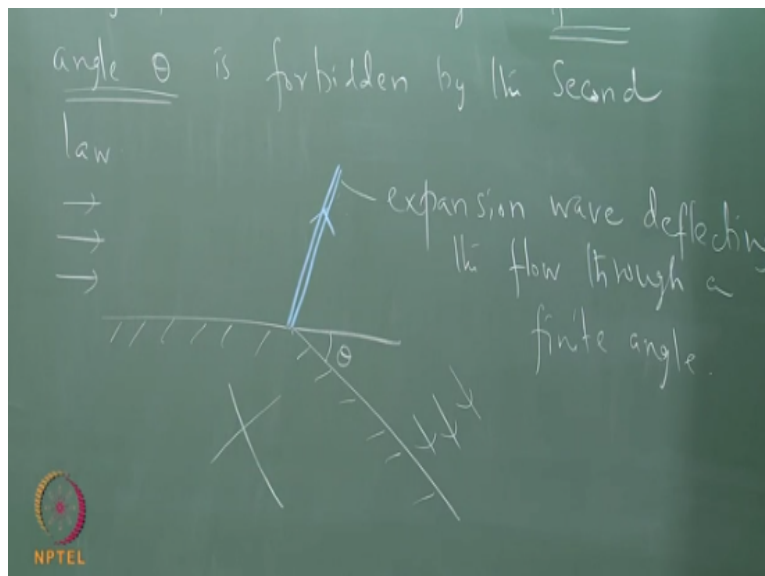 angle θ is forbidden by the Second
law
expansion wave deflecting
the flow through a
finite angle.
θ
NPTEL